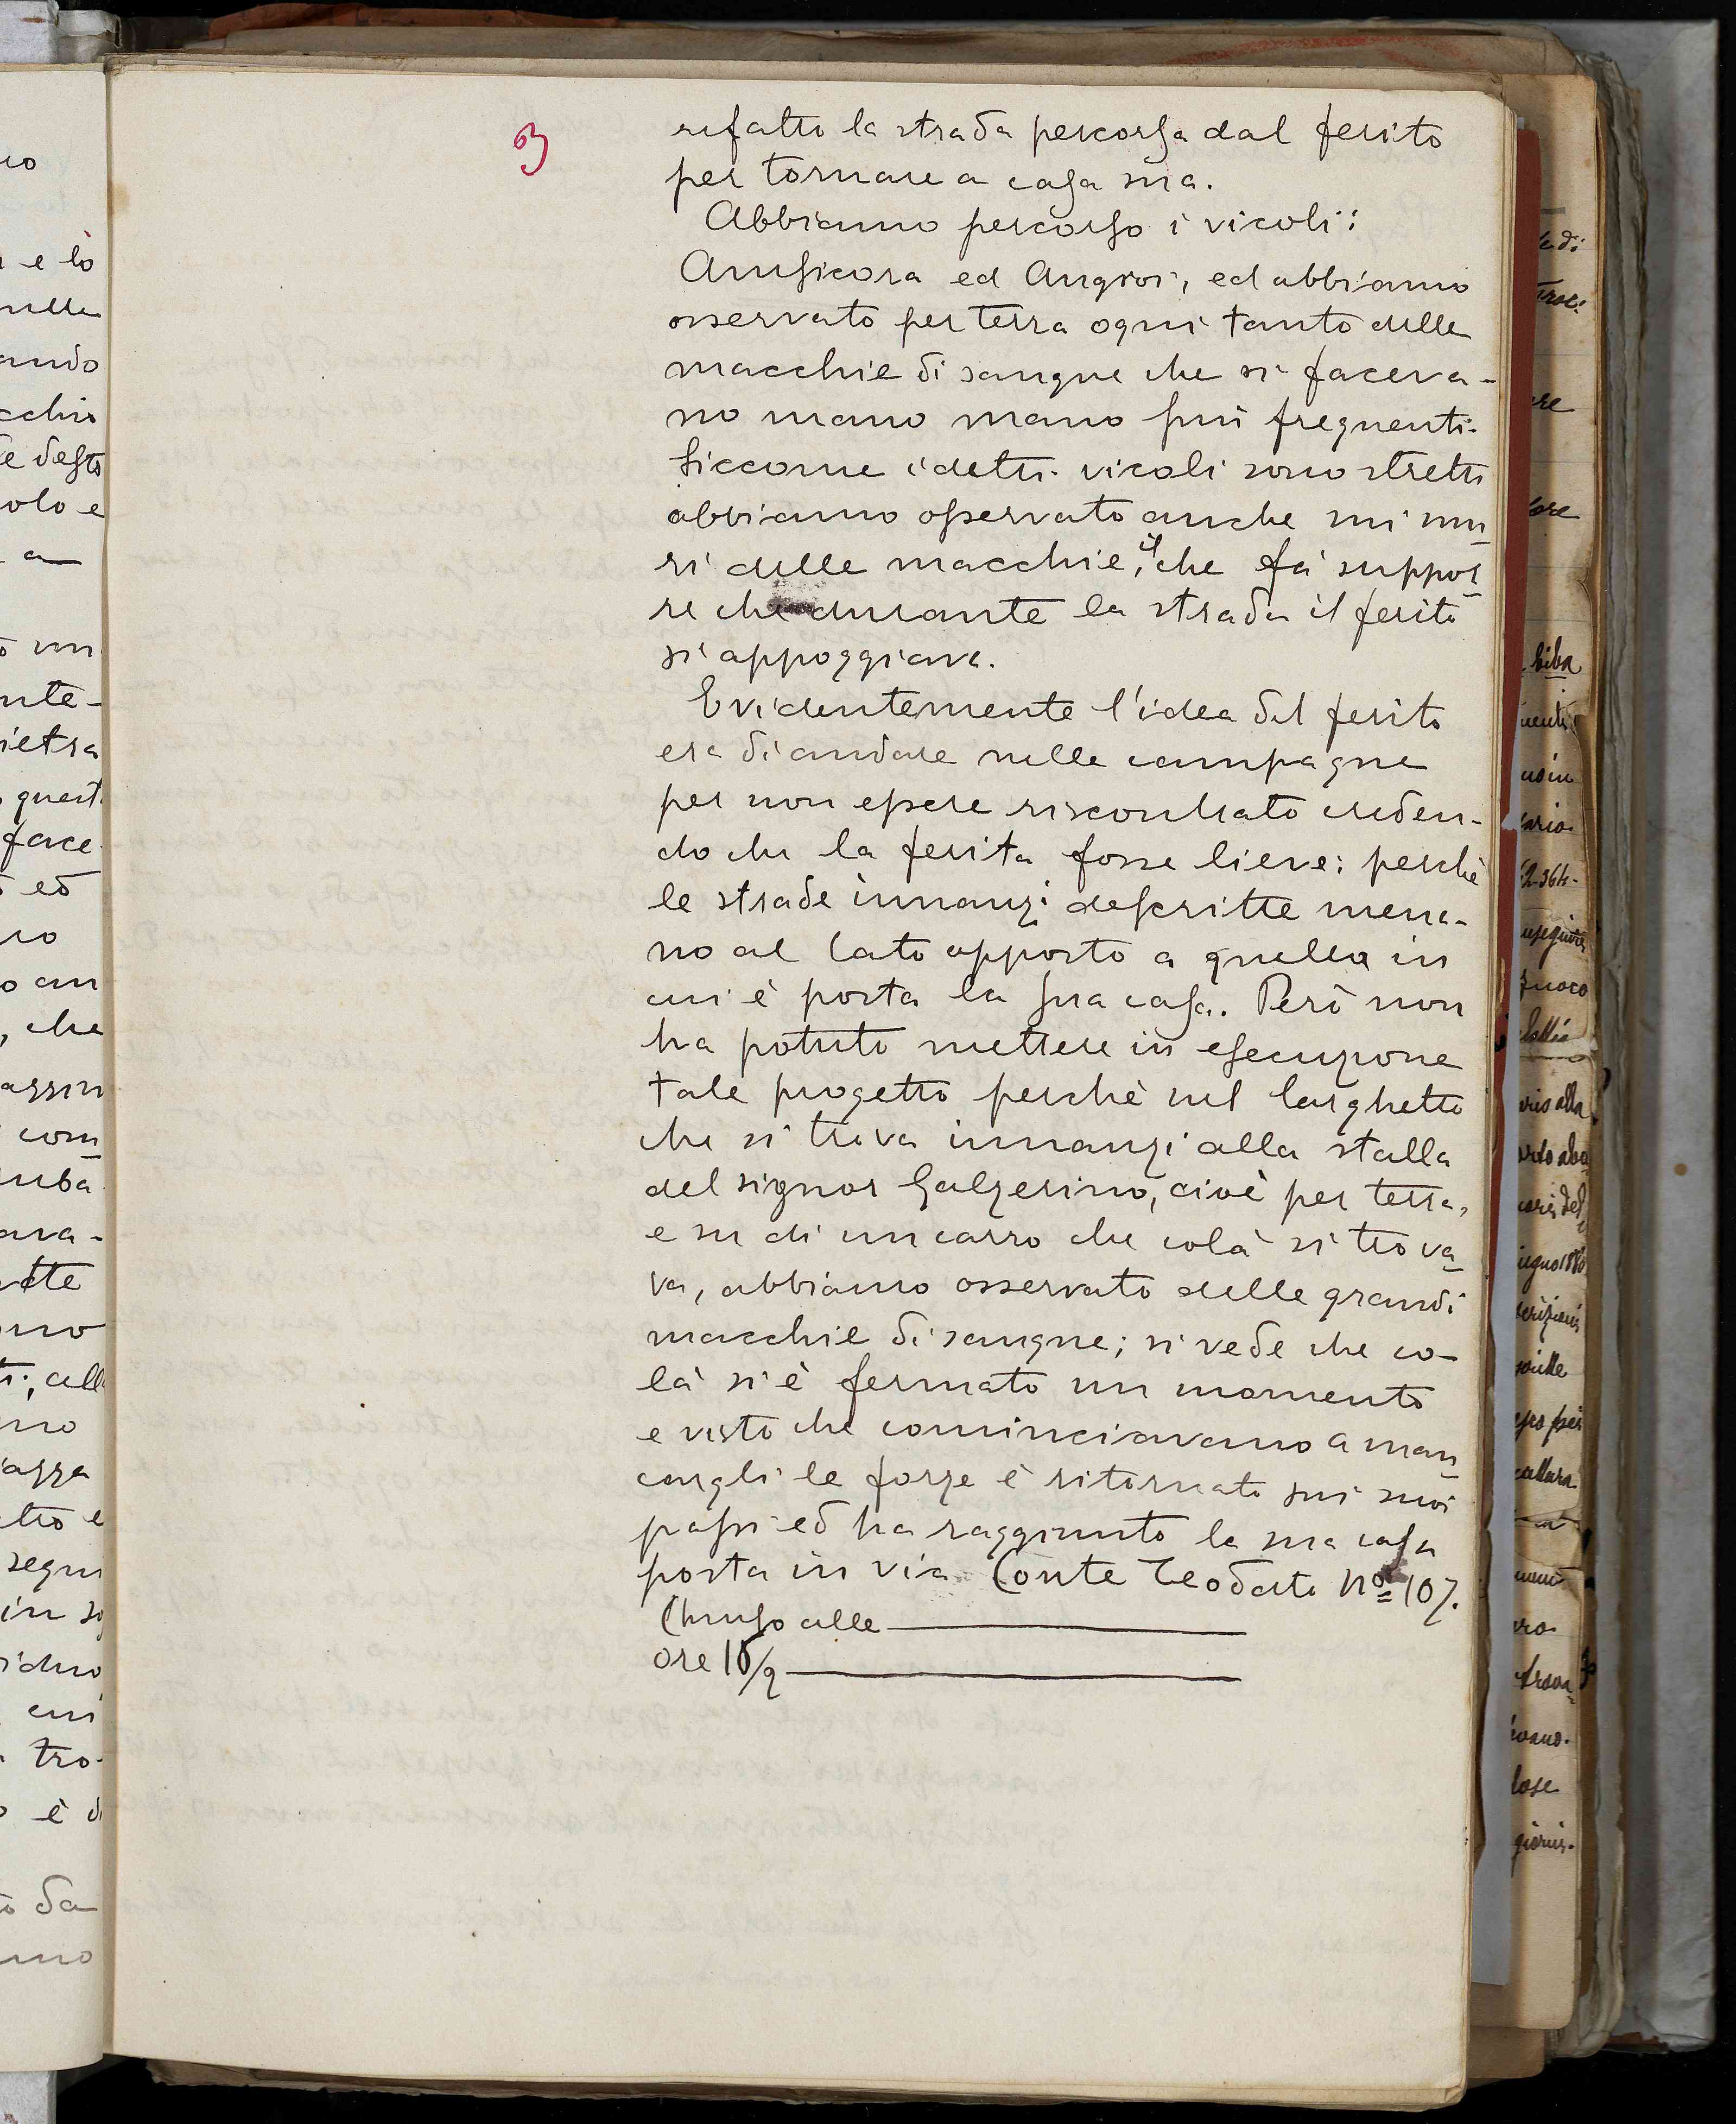 3
rifatto la strada percorsa dal ferito
per tornare a casa sua.
Abbiamo percorso i vicoli:
Amsicora ed Angioi, ed abbiamo
osservato per terra ogni tanto delle
macchie di sangue che si faceva-
no mano mano più frequenti.
Siccome i detti vicoli sono stretti
abbiamo osservato anche sui mu
ri delle macchie, il che fà suppor
re che durante la strada il ferito
si appoggiava.
Evidentemente l'idea del ferito
era di andare nelle campagne
per non essere riscontrato creden-
do che la ferita fosse lieve; perchè
le strade innanzi descritte mena-
no al lato opposto a quello in
cui è posta la sua casa. Però non
ha potuto mettere in esecuzione
tale progetto perchè nel larghetto
che si trova innanzi alla stalla
del signor Galzerino, cioè per terra,
e su di un carro che colà si trova
va, abbiamo osservato delle grandi
macchie di sangue; si vede che co-
là si è fermato un momento
e visto che cominciavano a man
cargli le forze è ritornato sui suoi
passi ed ha raggiunto la sua casa
posta in via Conte Teodato No 107.
Chiuso alle
ore